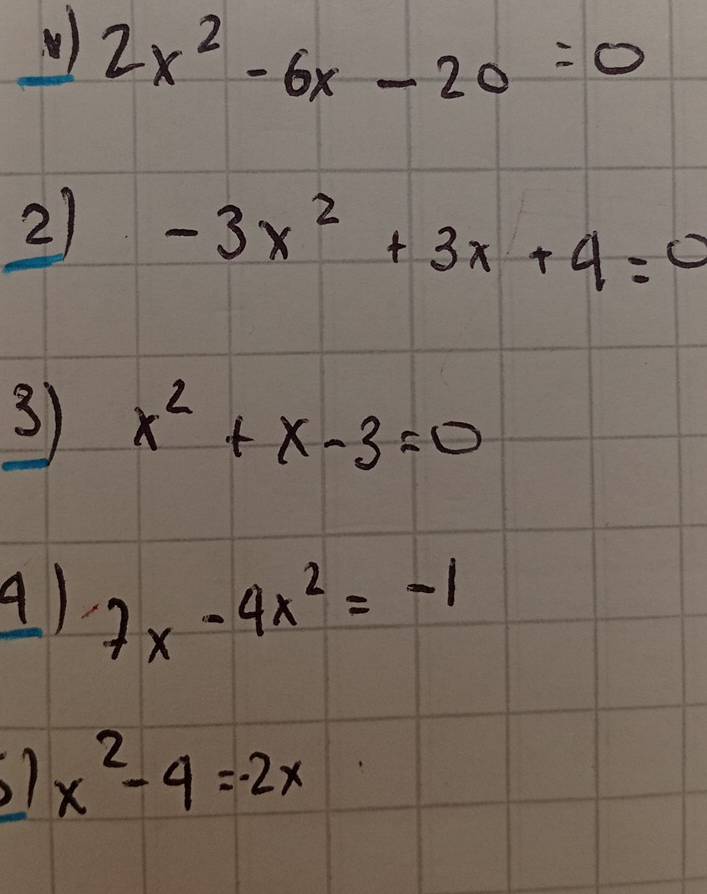 1) 2x² - 6x - 20 = 0
2) -3x² + 3x + 4 = 0
3) x² + x - 3 = 0
4) 7x - 4x² = -1
5) x² - 4 = -2x